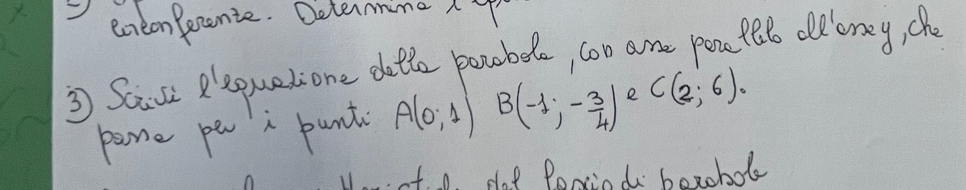 circonferenza. Determina l'
3) Scrivi l'equazione della parabola, con asse parallelo all'asse y, che
passa per i punti A(0; 1) B(-1; -3/4) e C(2; 6).
del fascio di parabole